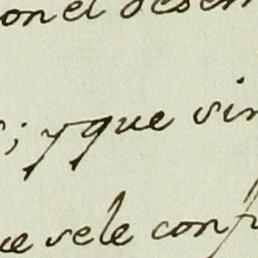 on el desem
; y que sin
ue se le conf